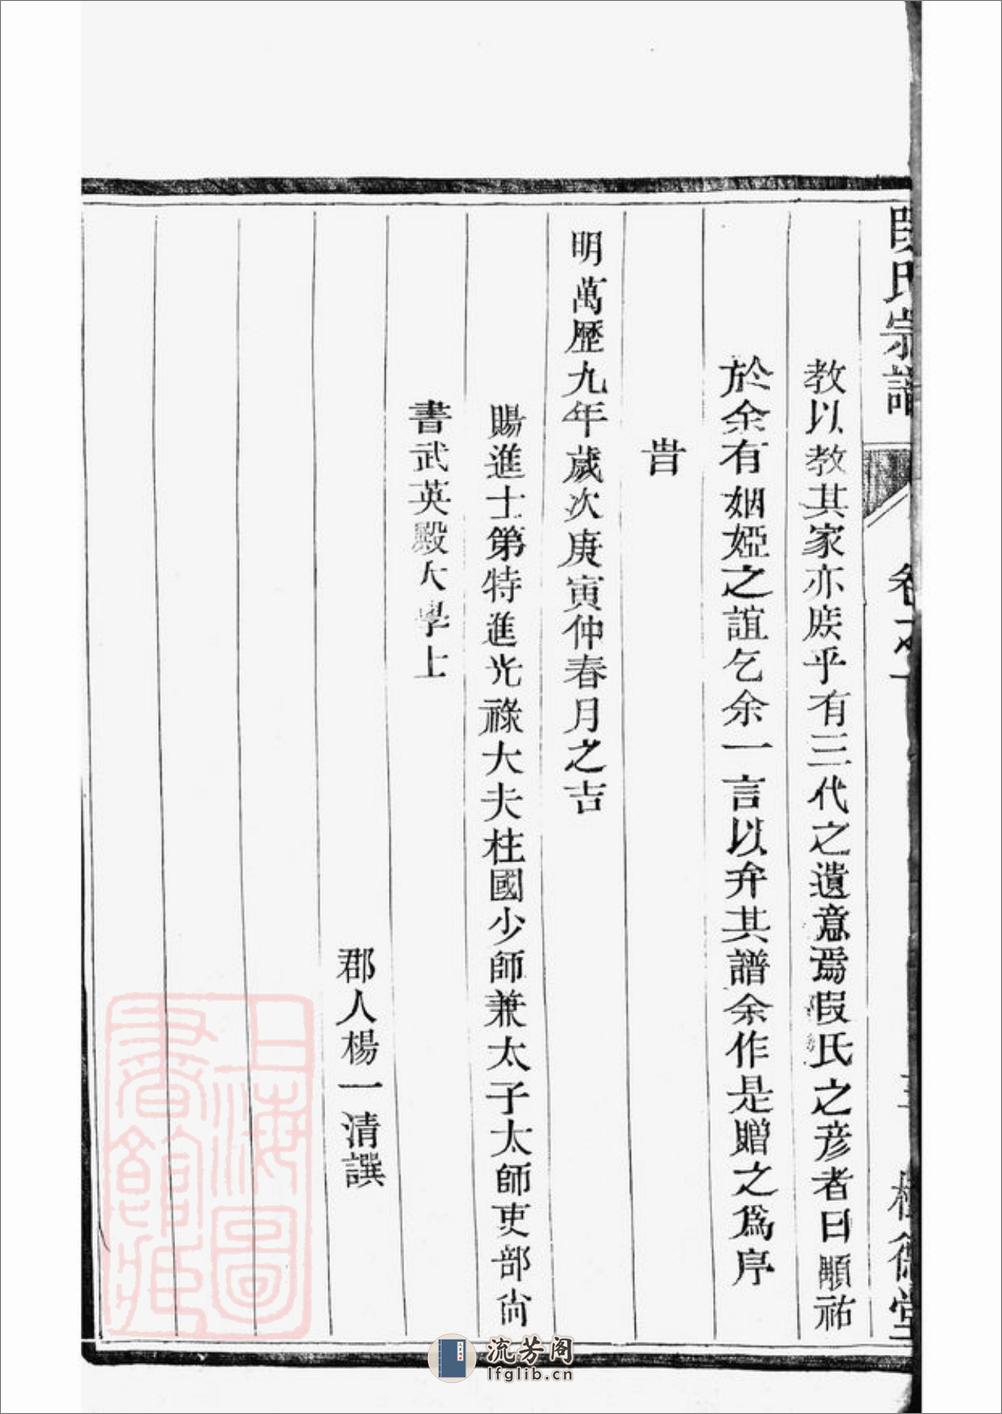 段氏宗譜
教以教其家亦庶乎有三代之遺意焉段氏之彥者曰順祐
於余有姻婭之誼乞余一言以弁其譜余作是贈之爲序
旹
明萬歷九年歲次庚寅仲春月之吉
賜進士第特進光祿大夫柱國少師兼太子太師吏部尙
書武英殿大學士
郡人楊一清譔
上海圖書館藏
流芳阁
lfglib.cn